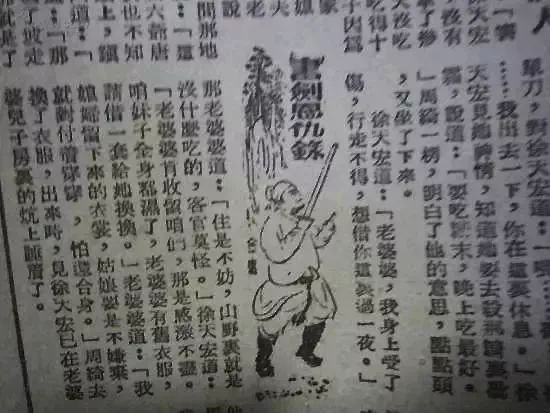 人
「寶
徐天宏
，沒有
沒吃
吃得十
子因爲
家
夫
老
說
間那地
六爺唐
也不知
上，
道：「
「那
坡走
就是了
單刀，對徐天宏道：「
……我出去一下，你在這裏休息。」徐
天宏見她神情，知道她要去殺
霜，說道：「要吃 末，晚上吃最好。
」周綺一楞，明白了他的意思，點點頭
，又坐了下來。
徐天宏道：「老婆婆，我身上受了
傷，行走不得，想借你這裏過一夜。」
書劍恩仇錄
那老婆婆道：「住是不妨，山野裏就是
沒什麼吃的，客官莫怪。」徐天宏道：
「老婆婆肯收留咱們，那是感激不盡。
咱妹子全身都濕了，老婆婆有舊衣服，
請借一套給她換換。」老婆婆道：「我
媳婦留下來的衣裳，姑娘要是不嫌棄，
就對付着穿穿，怕還合身。」周綺去
換了衣服，出來時，見徐天宏已在老婆
婆兒子房裏的炕上睡着了。